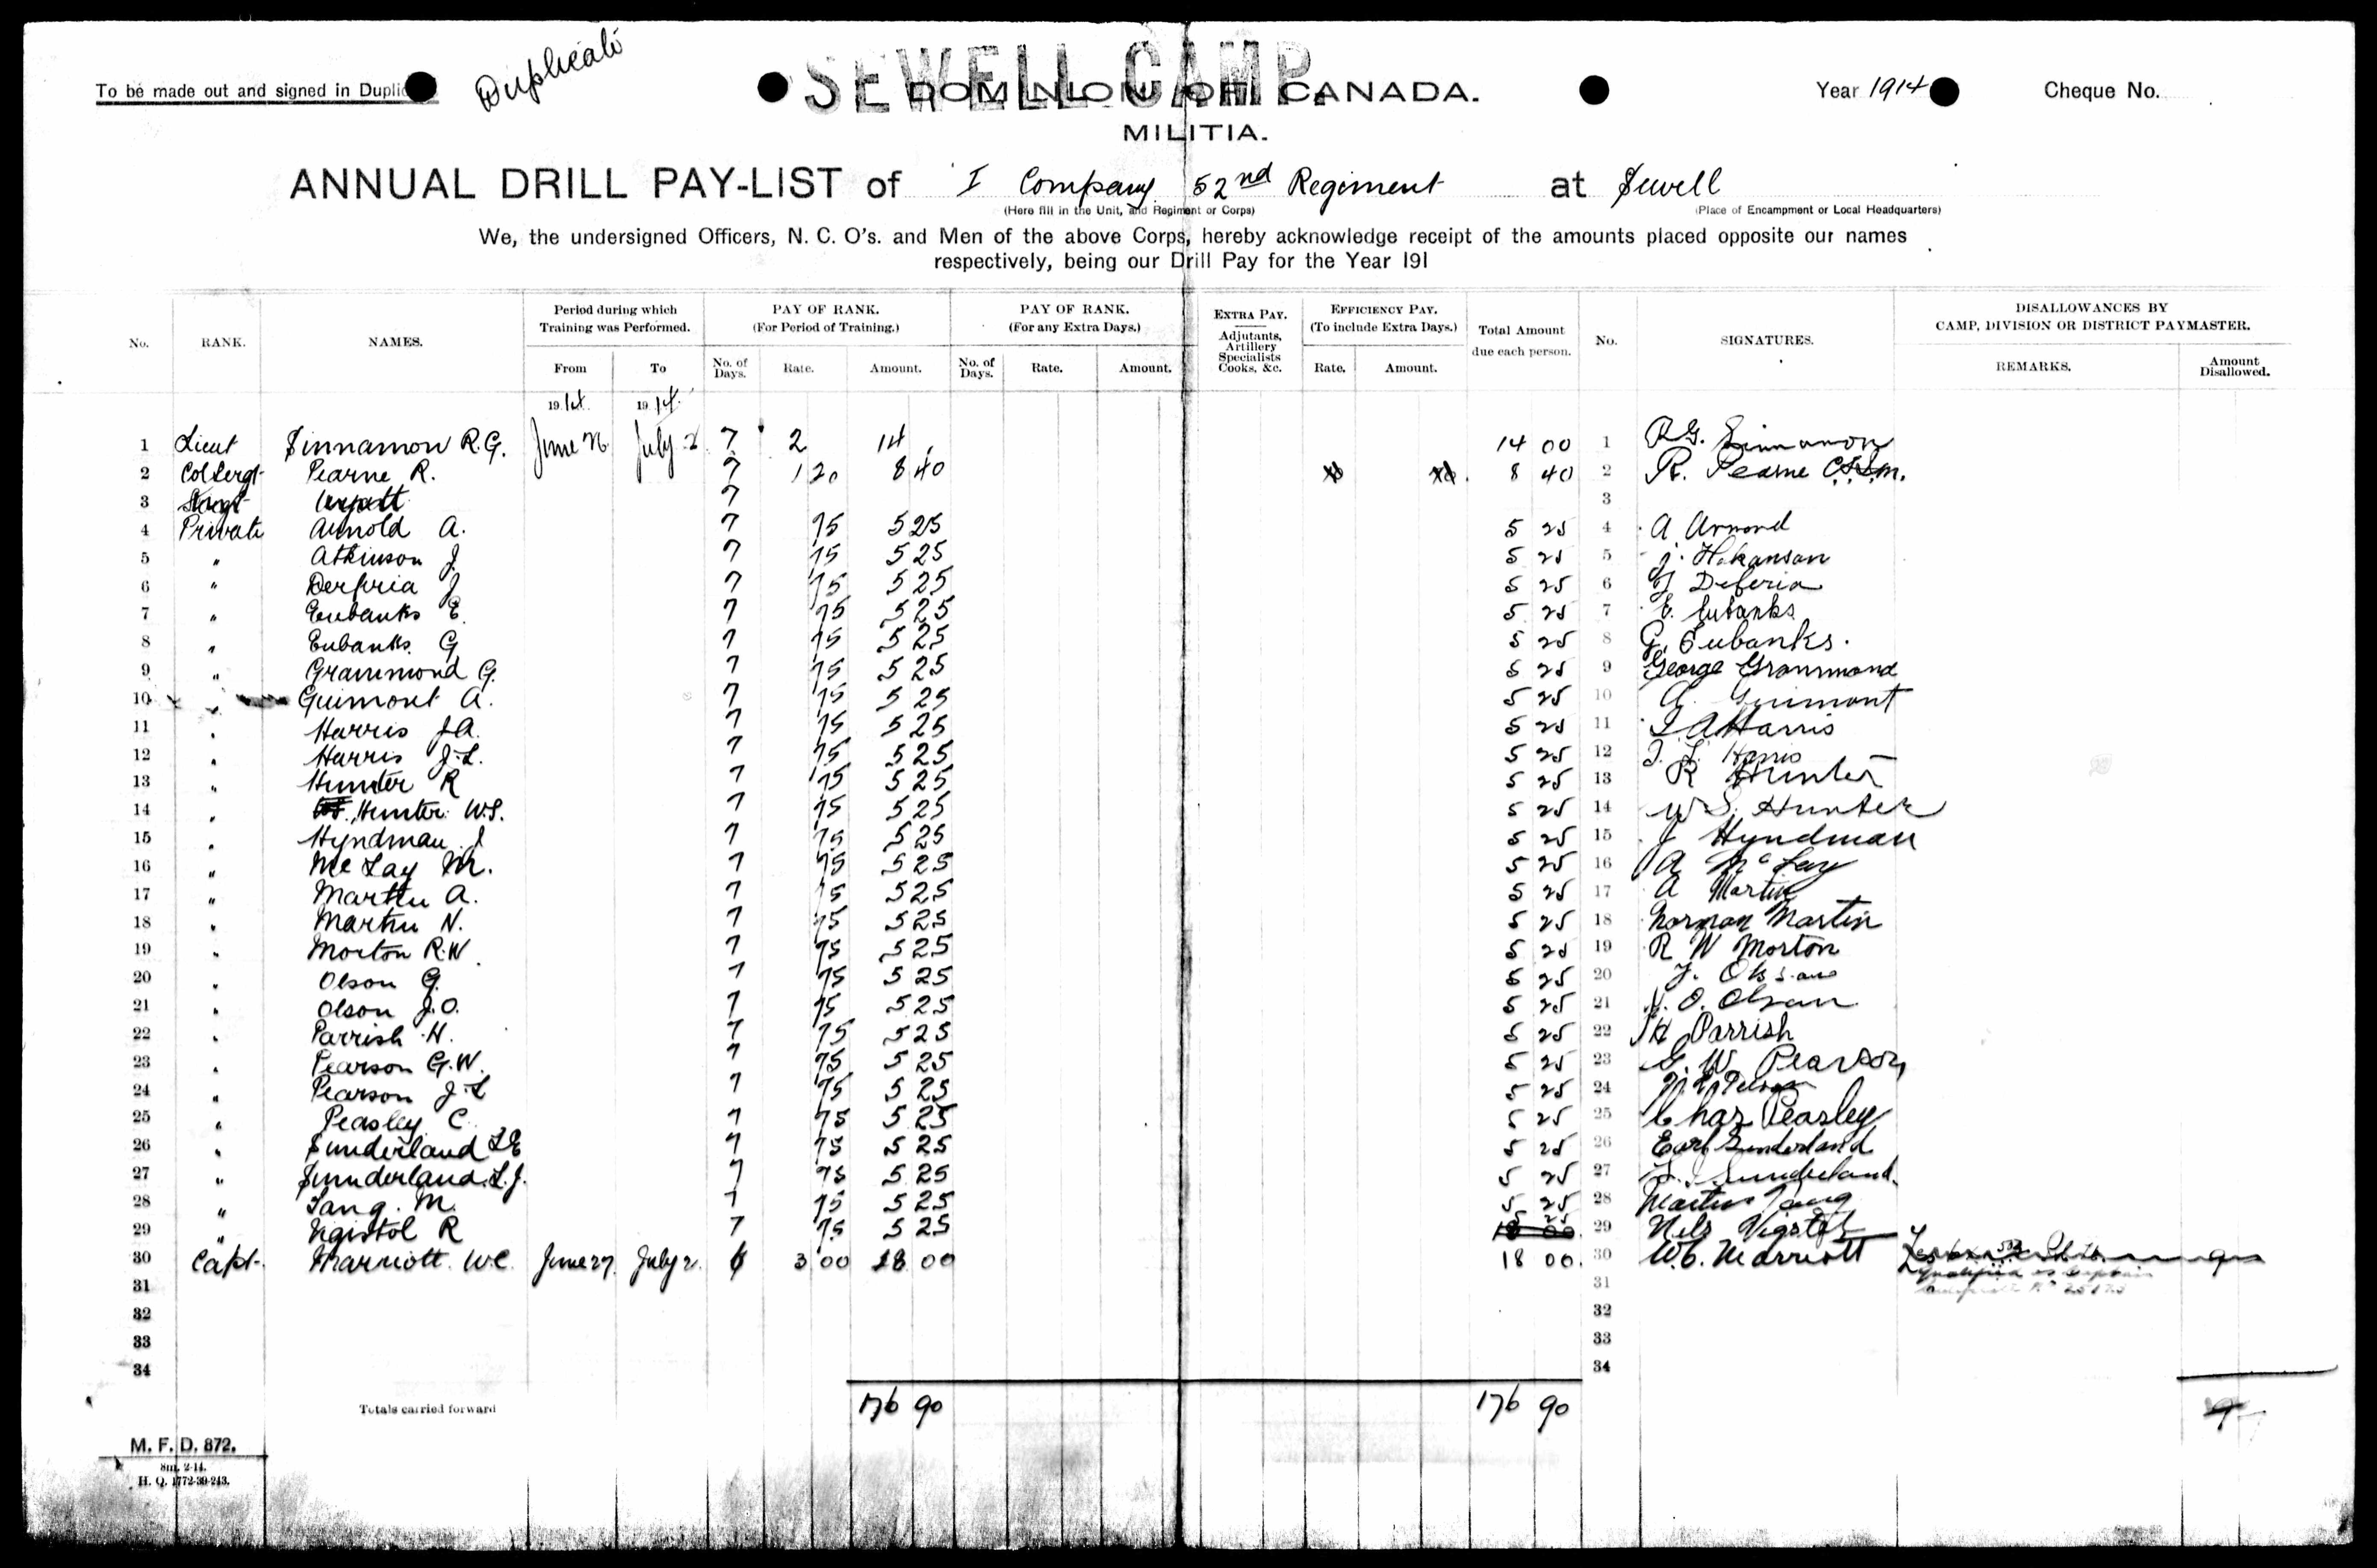 To be made out and signed in Duplic
Duplicate
SEWELL CAMP.
DOMINION OF CANADA.
Year 1914
Cheque No.
MILITIA.
ANNUAL DRILL PAY-LIST of I Company 52nd Regiment at Sewell
(Here fill in the Unit, and Regiment or Corps) (Place of Encampment or Local Headquarters)
We, the undersigned Officers, N. C. O's. and Men of the above Corps, hereby acknowledge receipt of the amounts placed opposite our names
respectively, being our Drill Pay for the Year 191
No. RANK. NAMES. Period during which Training was Performed. From To PAY OF RANK. (For Period of Training.) No. of Days. Rate. Amount. PAY OF RANK. (For any Extra Days.) No. of Days. Rate. Amount. EXTRA PAY. Adjutants, Artillery Specialists Cooks, &c. EFFICIENCY PAY. (To include Extra Days.) Rate. Amount. Total Amount due each person. No. SIGNATURES. DISALLOWANCES BY CAMP, DIVISION OR DISTRICT PAYMASTER. REMARKS. Amount Disallowed.
1914. 1914.
1 Lieut Sinnamon R.G. June 26 July 2 7 2 14 14 00 1 R.G. Sinnamon
2 Col Sergt Pearne R. 7 1 20 8 40 8 40 2 R. Pearne C.S.M.
3 7 3
4 Private Arnold A. 7 75 5 25 5 25 4 A Arnond
5 " Atkinson J. 7 75 5 25 5 25 5 J. Hakanson
6 " Derferia J 7 75 5 25 5 25 6 J Deferia
7 " Eeubanks E. 7 75 5 25 5 25 7 E. Eubanks
8 " Eubanks. G 7 75 5 25 5 25 8 G. Eubanks.
9 " Grammond G. 7 75 5 25 5 25 9 George Grammond
10 " Guimont A. 7 75 5 25 5 25 10 A. Guimont
11 " Harris J.A. 7 75 5 25 5 25 11 J A Harris
12 " Harris J.L. 7 75 5 25 5 25 12 J. L. Harris
13 " Hunter R 7 75 5 25 5 25 13 R Hunter
14 " Hunter W.S. 7 75 5 25 5 25 14 W S. Hunter
15 " Hyndman J 7 75 5 25 5 25 15 J Hyndman
16 " McLay M. 7 75 5 25 5 25 16 A McLay
17 " Martin A. 7 75 5 25 5 25 17 A Martin
18 " Martin N. 7 75 5 25 5 25 18 Norman Martin
19 " Morton R.W. 7 75 5 25 5 25 19 R W Morton
20 " Olson G. 7 75 5 25 5 25 20
21 " Olson J.O. 7 75 5 25 5 25 21 J. O. Olson
22 " Parrish H. 7 75 5 25 5 25 22 H Parrish
23 " Pearson G.W. 7 75 5 25 5 25 23 G. W. Pearson
24 " Pearson J.L 7 75 5 25 5 25 24
25 " Peasley C. 7 75 5 25 5 25 25 Chas Peasley
26 " Sunderland L E 7 75 5 25 5 25 26 Earl Sunderland
27 " Sunderland. L.J. 7 75 5 25 5 25 27 L. J. Sunderland.
28 " Tang. M. 7 75 5 25 5 25 28 Martin Tang
29 " Vigistol R 7 75 5 25 5 25 29 Nils Vigstol
30 Capt. Marriott. W.C. June 27. July 2. 6 3 00 18 00 18 00. 30 W.C. Marriott
Qualified as Captain
31 31
32 32
33 33
34 34
Totals carried forward 176 90 176 90
M. F. D. 872.
8m. 2-14.
H. Q. 1772-39-243.